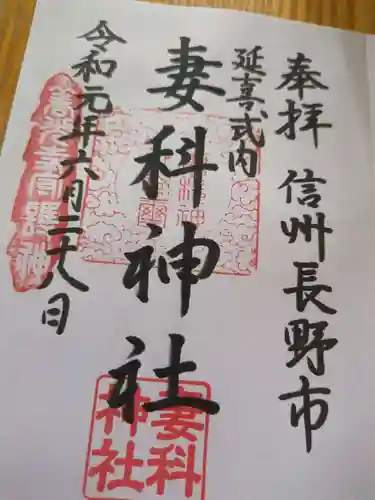 奉拝 信州長野市
延喜式内
妻科神社
令和元年六月二十八日
妻科
神社